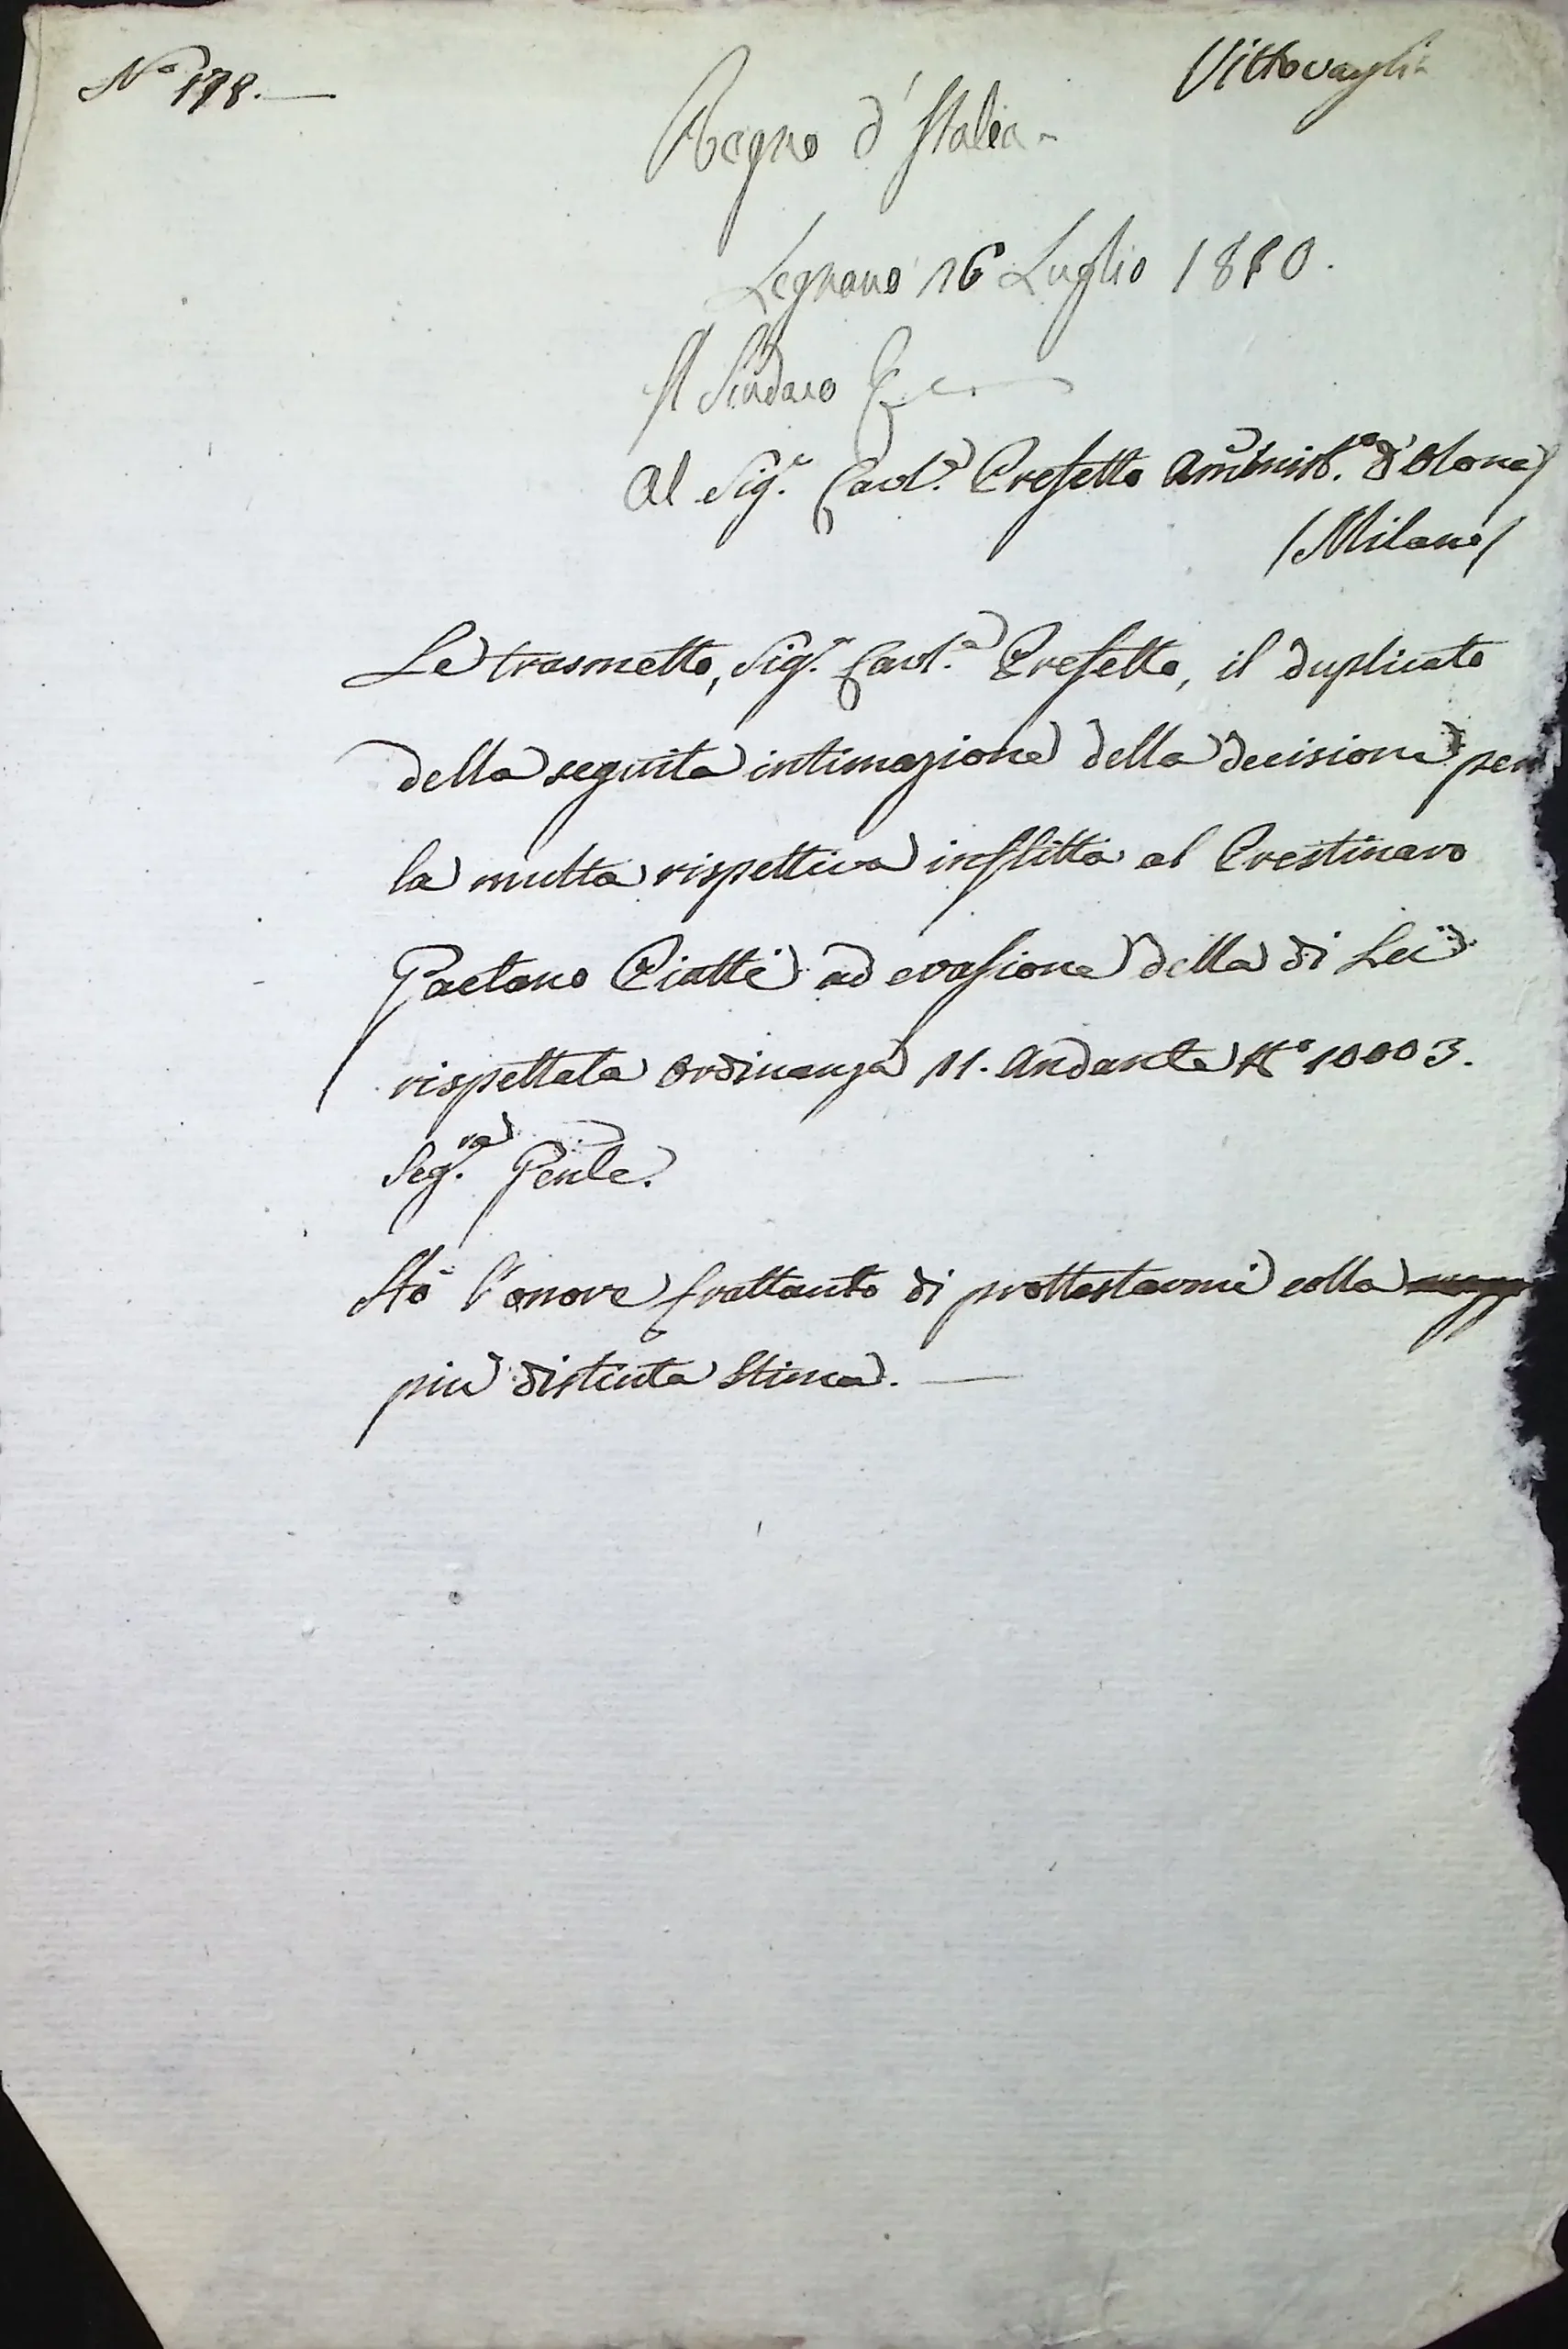 N.º 178.
Vittovaglie
Regno d'Italia
Legnano 16 Luglio 1810.
Il Sindaco
Al Sig.r Cavl.e Prefetto Amminist.o d'Olona
/Milano/
Le trasmetto, Sig.r Cavl.e Prefetto, il duplicato
della seguita intimazione della decisione per
la multa rispettiva inflitta al Prestinaro
Gaetano Piatti ad evasione della di Lei
rispettata Ordinanza 11. Andante N.º 10003.
Seg.ra Gen.le.
Hò l'onore frattanto di prottestarmi colla
più distinta Stima.